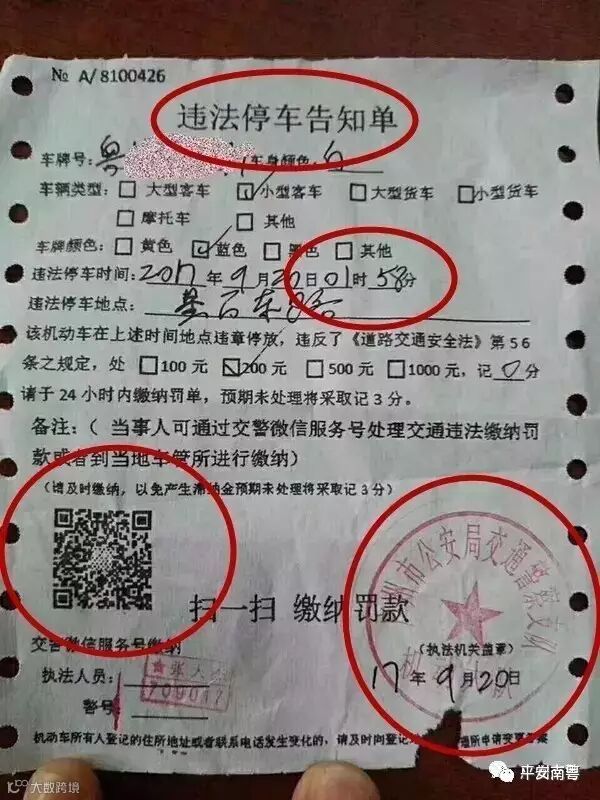 № A/8100426
违法停车告知单
车牌号：粤 车身颜色：白
车辆类型：□ 大型客车 ☑小型客车 □ 大型货车 □小型货车
□ 摩托车 □ 其他
车牌颜色：□ 黄色 ☑蓝色 □黑色 □其他
违法停车时间：2017年9月20日01时58分
违法停车地点：
该机动车在上述时间地点违章停放，违反了《道路交通安全法》第56
条之规定，处 □100元 ☑200元 □500元 □1000元，记0分
请于24小时内缴纳罚单，预期未处理将采取记3分。
备注：（ 当事人可通过交警微信服务号处理交通违法缴纳罚
款或者到当地车管所进行缴纳）
（请及时缴纳，以免产生滞纳金预期未处理将采取记3分）
扫一扫 缴纳罚款
交警微信服务号缴纳
州市公安局交通警察支队
（执法机关盖章）
执法人员：
17年9月20日
警号：
机动车所有人登记的住所地址或者联系电话发生变化的，请及时向登记
大数跨境
平安南粤